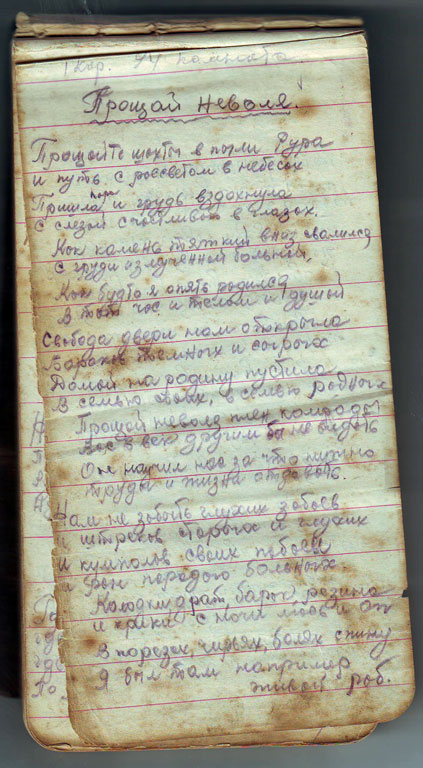 1 кор. 44 комната.
Прощай неволя.
Прощайте шахты в пыли Рура
и путь с рассветом в небесах
Пришла пора и грудь вздохнула
С слезой счастливою в глазах.
Как камень тяжкий вниз свалился
С груди измученной больной,
Как будто я опять родился
В тот час и телом и душой
Свобода двери нам открыла
Бараков темных и сырых
Домой на родину пустила
В семью своих, в семью родных
Прощай неволя плен колоды
Вас в век другим бы не видать
Он научил нас за что нужно
труды и жизнь отдавать.
Нам не забыть глухих забоев
и штреков старых и глухих
и кумполов своих побоев
и ран породою больных.
Колодки драт барык резина
и крики с ночи лоос и ап
В порезах, чирьях, болях спину
Я был там например
живой раб.